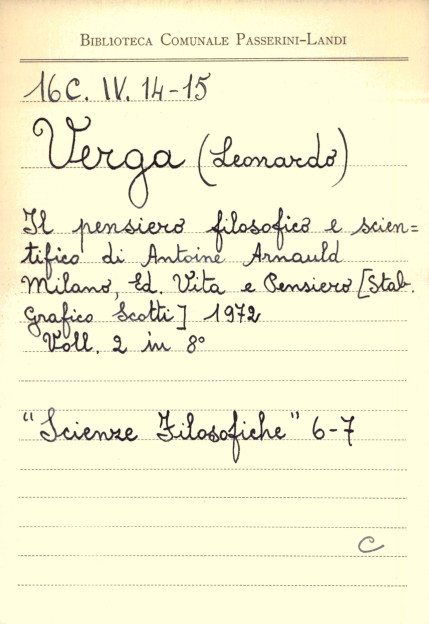 BIBLIOTECA COMUNALE PASSERINI-LANDI
16C. IV. 14-15
Verga (Leonardo)
Il pensiero filosofico e scien=
tifico di Antoine Arnauld
Milano, Ed. Vita e Pensiero [Stab.
Grafico Scotti] 1972
Voll. 2 in 8°
"Scienze Filosofiche" 6-7
C